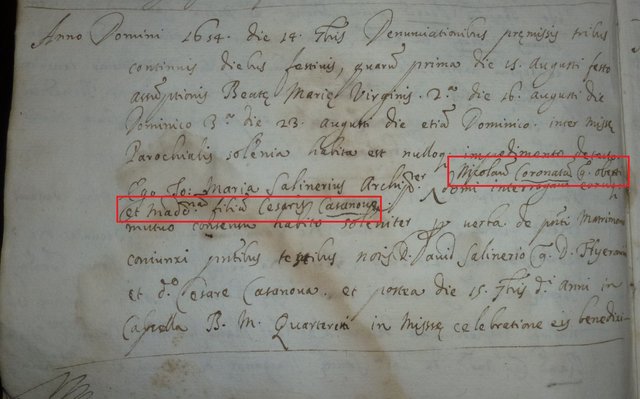 Anno Domini 1654. die 14. 7bris Denunciationibus premissis tribus
continuis diebus festivis, quarũ prima die 15. Augusti festo
assũptionis Beatę Marię Virginis. 2.ª die 16. Augusti die
Dominico 3.ª die 23. Augusti die etiã Dominico. inter Missę
Parochialis solẽnia habita est nulloq; impedimento
Nicolaũ Coronatũ q. obᵗⁱ
Ego Jo: Maria Salinerius Archip.ᵉʳ domi interrogavi
et Madd.ⁿᵃ filiã Cesaris Casanovę
mutuo consensu habito solẽniter p verba de pñti Matrimon
coniunxi pñtibus testibus nois D. David Salinerio q. D.
et d.º Cesare Casanova. et postea die 15. 7bris d.ⁱ anni in
Capella B. M. Quartereti in Missę celebratione eis benedixi